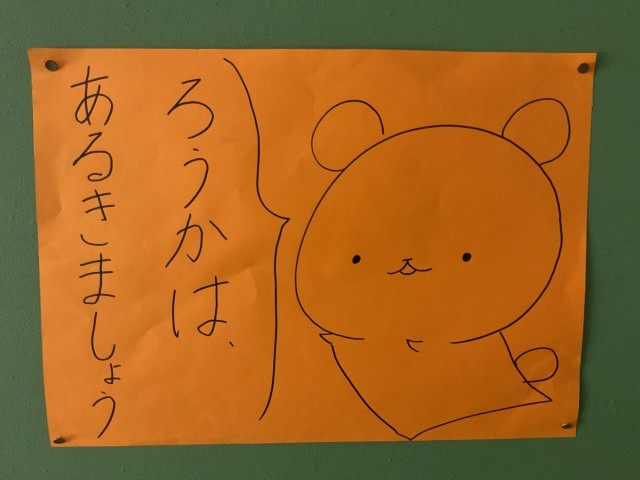 ろうかは、
あるきましょう